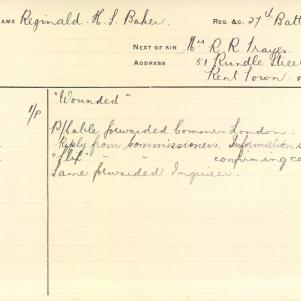 NAME Reginald H. S. Baker REG. &C. 27th Batt
NEXT OF KIN Mrs R R Trayes
ADDRESS 51 Rundle Street
Kent Town
"Wounded"
B/Cable forwarded Commrs London.
Reply from Commissioners. Information
"Flix" " " confirming
Same forwarded Inquirer.